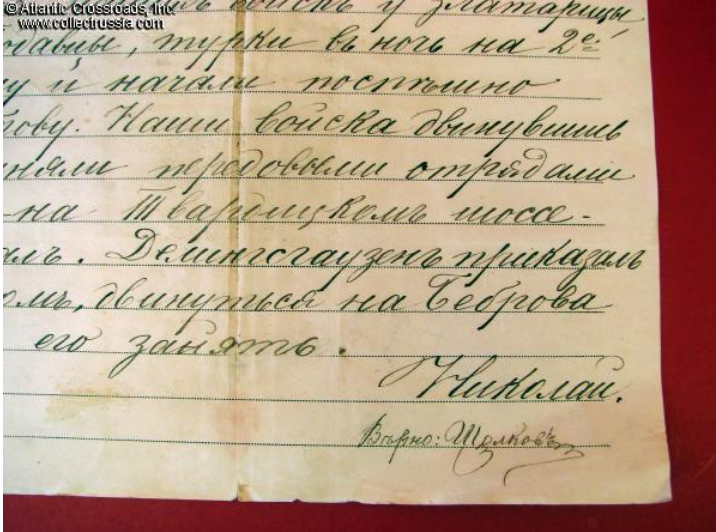 © Atlantic Crossroads, Inc.
www.collectrussia.com
войскъ у Златарицы
, турки въ ночь на 2е
у и начали поспѣшно
рову. Наши войска двинувшись
няли передовыми отрядами
на Твардицкомъ шоссе-
алъ. Делинсгаузенъ приказалъ
омъ, двинуться на Беброва
его занять.
Николай.
Вѣрно: